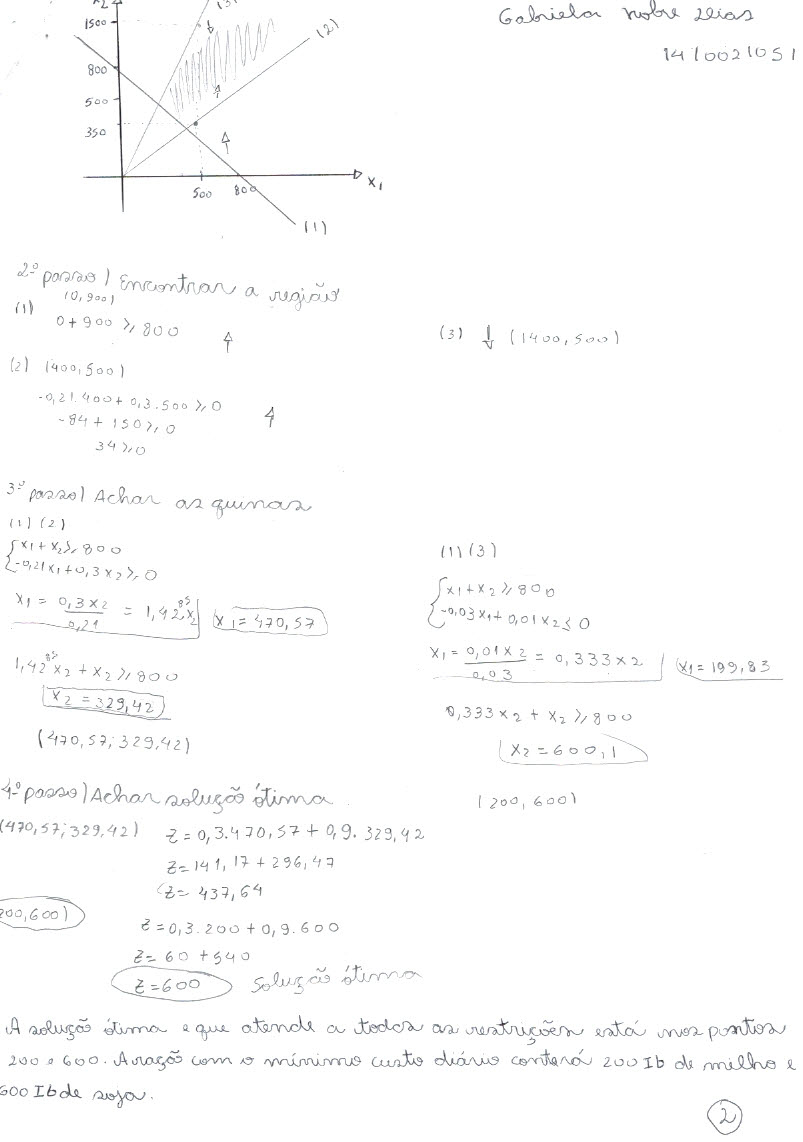 Gabriela Nobre Dias
14/0021051
x2
(3)
1500
(2)
800
500
350
500 800
x1
(1)
2º passo) Encontrar a região
(1) (0,900)
0+900 ≥ 800
(2) (400,500)
-0,21.400+0,3.500 ≥ 0
-84+150 ≥ 0
34 ≥ 0
(3) ↓ (1400,500)
3º passo) Achar as quinas
(1) (2)
x1+x2 ≥ 800
-0,21x1+0,3x2 ≥ 0
x1 = 0,3x2/0,21 = 1,4285x2 x1=470,57
1,4285x2 + x2 ≥ 800
x2 = 329,42
(470,57; 329,42)
(1) (3)
x1+x2 ≥ 800
-0,03x1+0,01x2 ≤ 0
x1 = 0,01x2/0,03 = 0,333x2 x1=199,83
0,333x2 + x2 ≥ 800
x2 = 600,1
(200,600)
4º passo) Achar solução ótima
(470,57; 329,42) z = 0,3.470,57 + 0,9.329,42
z = 141,17 + 296,47
z = 437,64
200,600) z = 0,3.200 + 0,9.600
z = 60 + 540
z = 600 solução ótima
A solução ótima e que atende a todas as restrições está nos pontos
200 e 600. A ração com o mínimo custo diário conterá 200 Ib de milho e
600 Ib de soja.
2